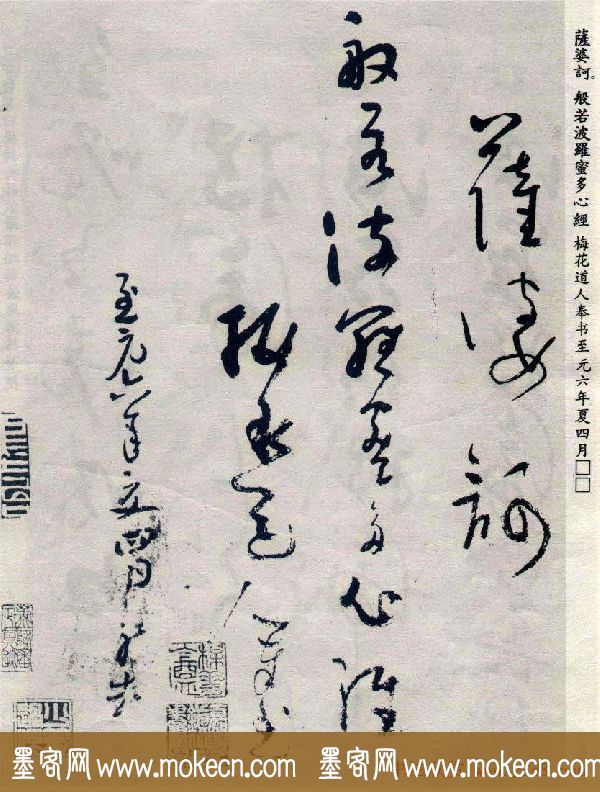 薩婆訶。般若波羅蜜多心經 梅花道人奉书至元六年夏四月□□
薩婆訶
般若波羅蜜多心經
梅花道人奉书
至元六年夏四月
墨客网 www.mokecn.com 墨客网 www.mokecn.com